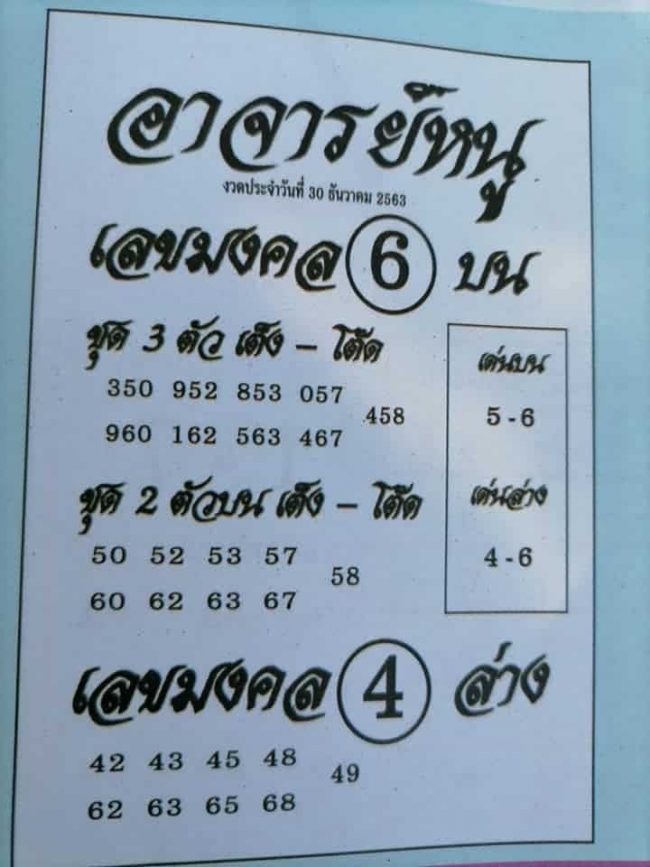 อาจารย์หนู
งวดประจำวันที่ 30 ธันวาคม 2563
เลขมงคล 6 บน
ชุด 3 ตัว เต็ง - โต๊ด
350 952 853 057
458
960 162 563 467
เด่นบน
5 - 6
ชุด 2 ตัวบน เต็ง - โต๊ด
50 52 53 57
58
60 62 63 67
เด่นล่าง
4 - 6
เลขมงคล 4 ล่าง
42 43 45 48
49
62 63 65 68